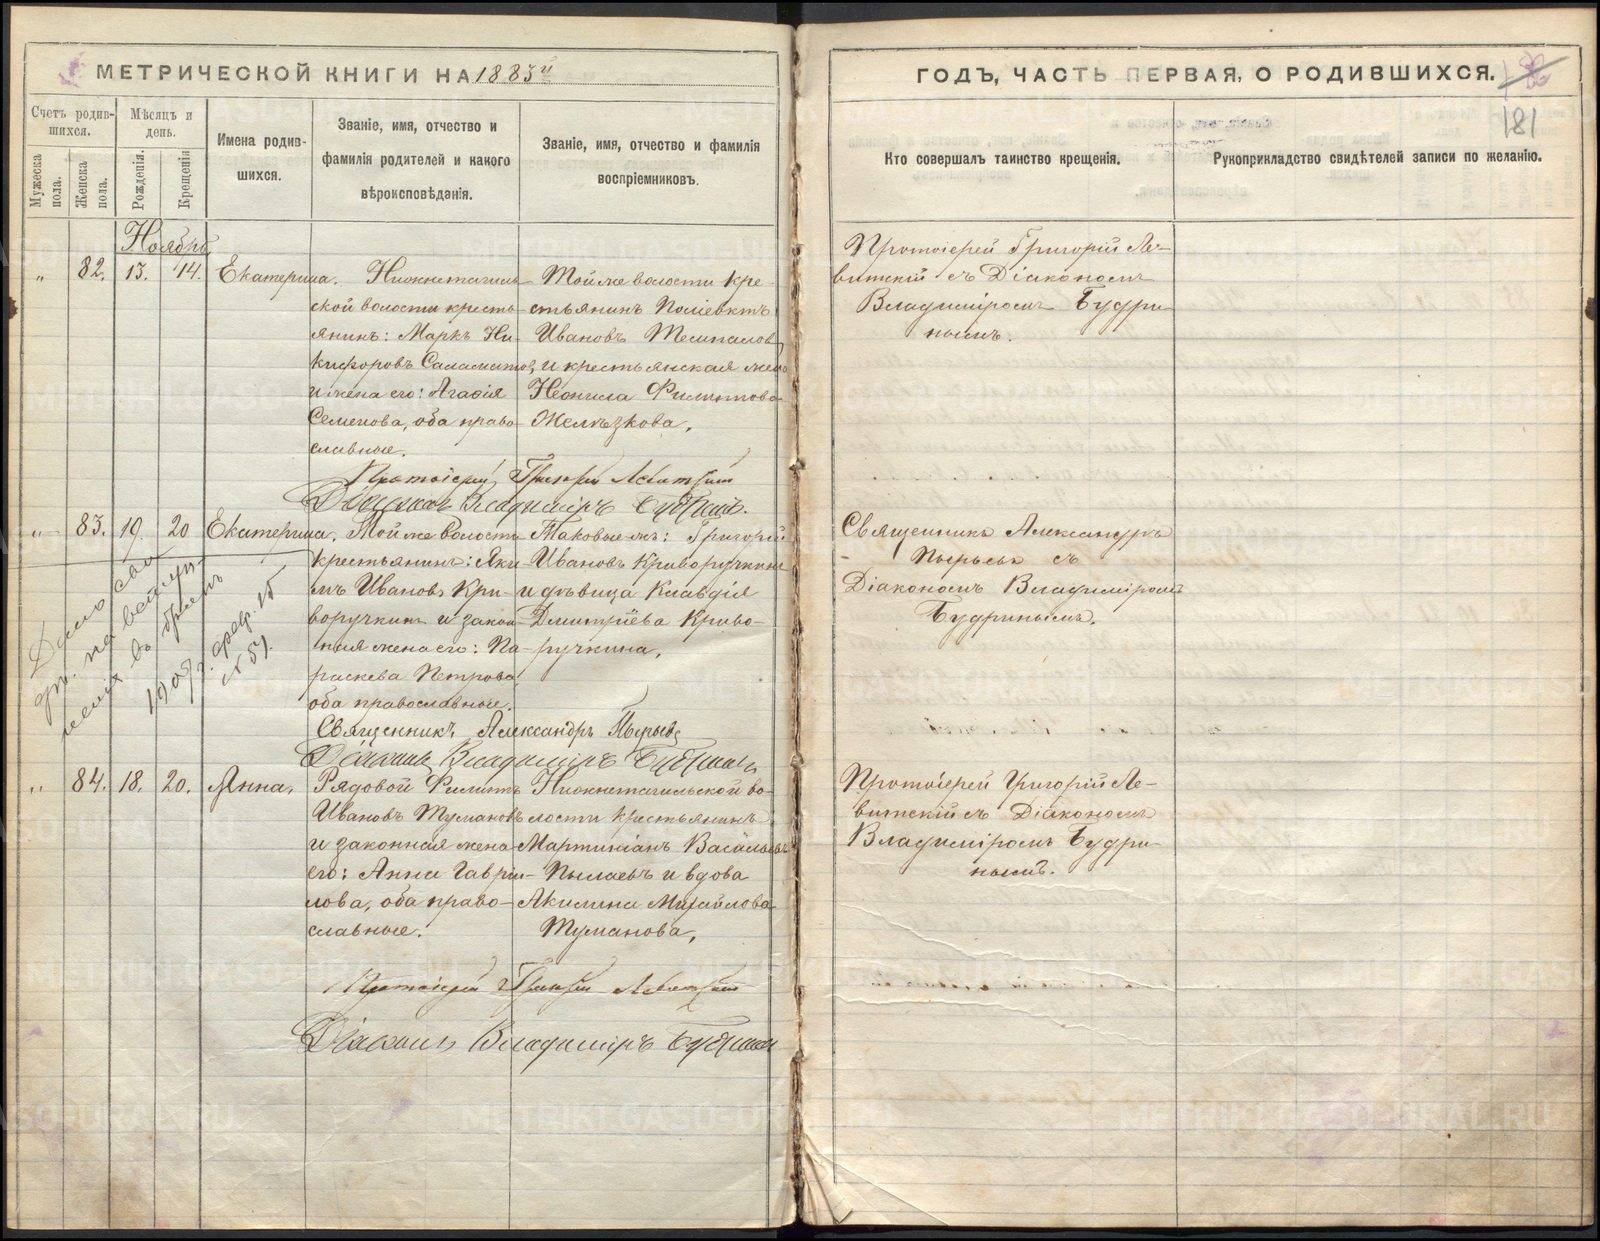 МЕТРИЧЕСКОЙ КНИГИ НА 1883й
ГОДЪ, ЧАСТЬ ПЕРВАЯ, О РОДИВШИХСЯ.
181
Счетъ родив-
шихся.
Мужеска
пола.
Женска
пола.
Мѣсяцъ и
день.
Рожденія.
Крещенія
Имена родив-
шихся.
Званіе, имя, отчество и
фамилія родителей и какого
вѣроисповѣданія.
Званіе, имя, отчество и фамилія
воспріемниковъ.
Кто совершалъ таинство крещенія.
Рукоприкладство свидѣтелей записи по желанію.
Ноябрь
„ 82. 13. 14. Екатерина.
Нижнетагиль-
ской волости кресть-
янинъ: Маркъ Ни-
кифоровъ Саламатовъ
и жена его: Агафія
Семенова, оба право-
славные.
Той же волости кре-
стьянинъ Поліевктъ
Ивановъ
и крестьянская жена
Неонила Филиппова
Желѣзкова.
Протоіерей Григорій Ле-
витскій съ Діакономъ
Владиміромъ Будри-
нымъ.
Протоіерей Григорій Левитскій
Діаконъ Владиміръ Будринъ.
„ 83. 19. 20 Екатерина.
Той же волости
крестьянинъ: Аки-
мъ Ивановъ Кри-
воручкинъ и закон-
ная жена его: Па-
раскева Петрова,
оба православные.
Таковые жъ: Григорій
Ивановъ Криворучкинъ
и дѣвица Клавдія
Дмитріева Криво-
ручкина.
Священникъ Александръ
Пырьевъ съ
Діакономъ Владиміромъ
Будринымъ.
Священникъ Александръ Пырьевъ
Діаконъ Владиміръ Будринъ
на вступ-
леніе въ бракъ
№ 54.
„ 84. 18. 20. Анна.
Рядовой Филиппъ
Ивановъ Тумановъ
и законная жена
его: Анна Гаври-
лова, оба право-
славные.
Нижнетагильской во-
лости крестьянинъ
Мартиніанъ Васильевъ
Пылаевъ и вдова
Акилина Михайлова
Туманова.
Протоіерей Григорій Ле-
витскій съ Діакономъ
Владиміромъ Будри-
нымъ.
Протоіерей Григорій Левитскій
Діаконъ Владиміръ Будринъ
METRIKI.GASO-URAL.RU